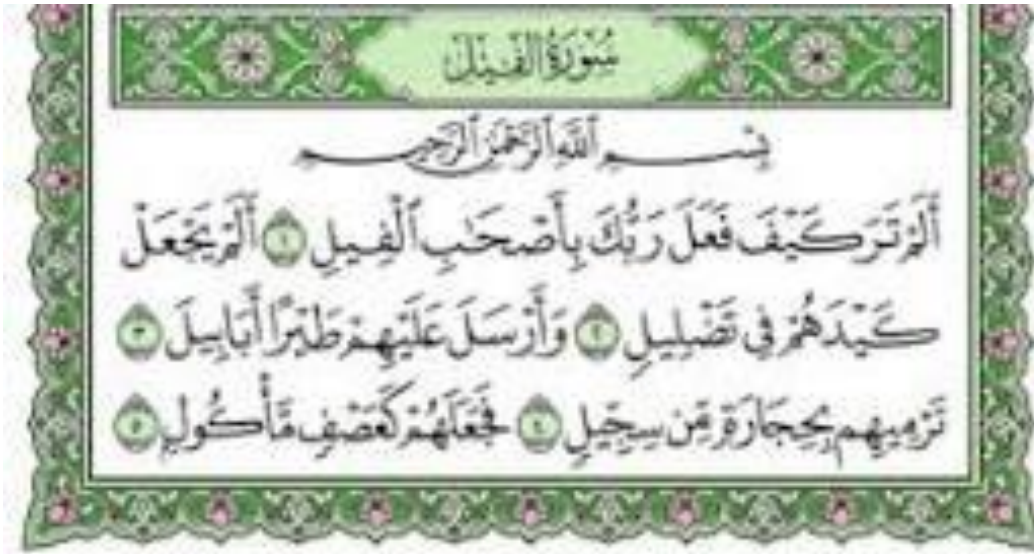 سُورَةُ الْفِيلِ
بِسْمِ ٱللَّهِ ٱلرَّحْمَٰنِ ٱلرَّحِيمِ
أَلَمْ تَرَ كَيْفَ فَعَلَ رَبُّكَ بِأَصْحَٰبِ ٱلْفِيلِ ١ أَلَمْ يَجْعَلْ
كَيْدَهُمْ فِي تَضْلِيلٍ ٢ وَأَرْسَلَ عَلَيْهِمْ طَيْرًا أَبَابِيلَ ٣
تَرْمِيهِم بِحِجَارَةٍ مِّن سِجِّيلٍ ٤ فَجَعَلَهُمْ كَعَصْفٍ مَّأْكُولٍ ٥